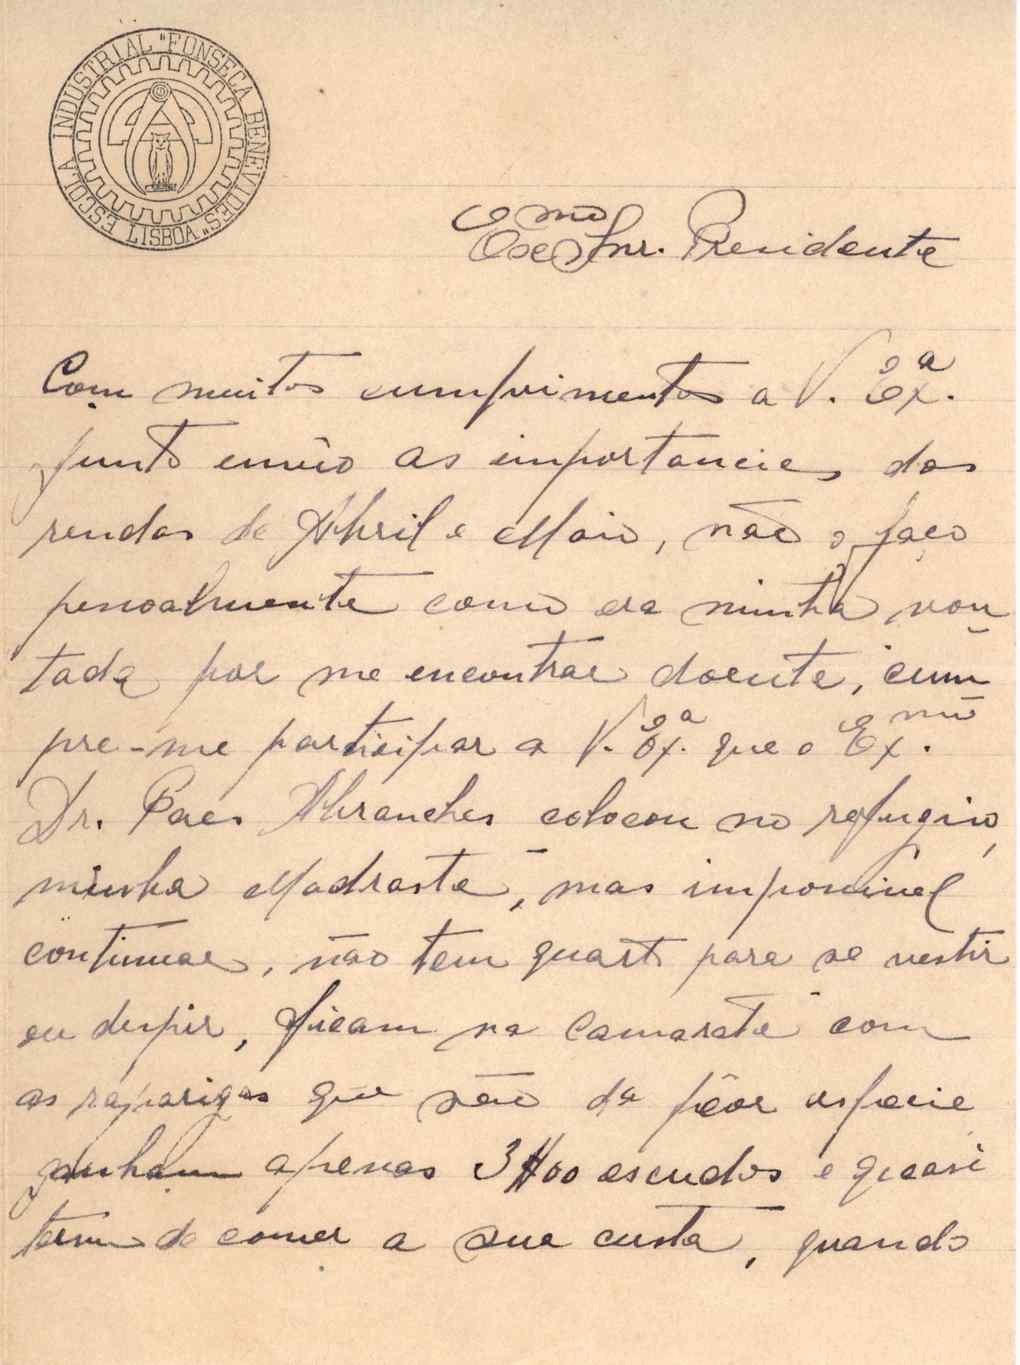 ESCOLA INDUSTRIAL "FONSECA BENEVIDES" LISBOA
Exmo Snr. Presidente
Com muitos cumprimentos a V. Exª.
junto envio as importancias das
rendas de Abril e Maio, não o faço
pessoalmente como era minha von
tade por me encontrar doente, cum
pre-me participar a V. Exª. que o Exmo.
Dr. Paes Abranches colocou no refugio,
minha Madrasta, mas impossivel
continuar, não tem quarto para se vestir
ou despir, ficam na Camarata com
as raparigas que são da péor especie
ganham apenas 3$00 escudos e quasi
teem de comer a sua custa, quando